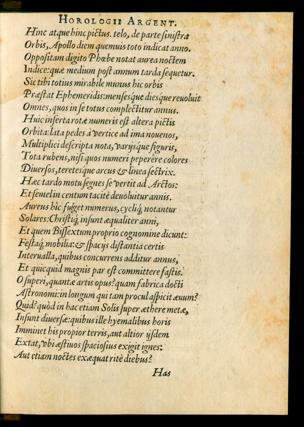 HOROLOGII ARGENT.
Hinc atque hinc pictus. telo, de parte sinistra
Orbis, Apollo diem quemuis toto indicat anno.
Oppositam digito Phœbe notat aurea noctem
Indice: quæ medium post annum tarda sequetur.
Sic tibi totius mirabile munus hic orbis
Præstat Ephemeridis: menses quæ dies quæ reuoluit
Omnes, quos in se totus complectitur annus.
Huic inserta rotæ numeris est altera pictis
Orbita: lata pedes à vertice ad ima nouenos,
Multiplici descripta nota, varijs quæ figuris,
Tota rubens, nisi quos numeri peperêre colores
Diuersos, teretes quæ arcus & linea sectrix.
Hæc tardo motu segnes se vertit ad Arctos:
Et semel in centum tacitè deuoluitur annis.
Aureus hic fuget numerus, cycliq́; notantur
Solares: Christiq́; insunt æqualiter anni,
Et quem Bissextum proprio cognomine dicunt:
Festaq́; mobilia: & spacijs distantia certis
Interualla, quibus concurrens additur annus,
Et quicquid magnis par est committere fastis.
O superi, quantæ artis opus? quam fabrica docti
Astronomi: in longum qui tam procul aspicit æuum?
Quid? quòd in hac etiam Solis super æthere metæ,
Insunt diuersæ: quibus ille hyemalibus horis
Imminet his propior terris, aut altior ijsdem
Extat, vbi æstiuos spaciosius exigit ignes:
Aut etiam noctes exæquat ritè diebus?
Has